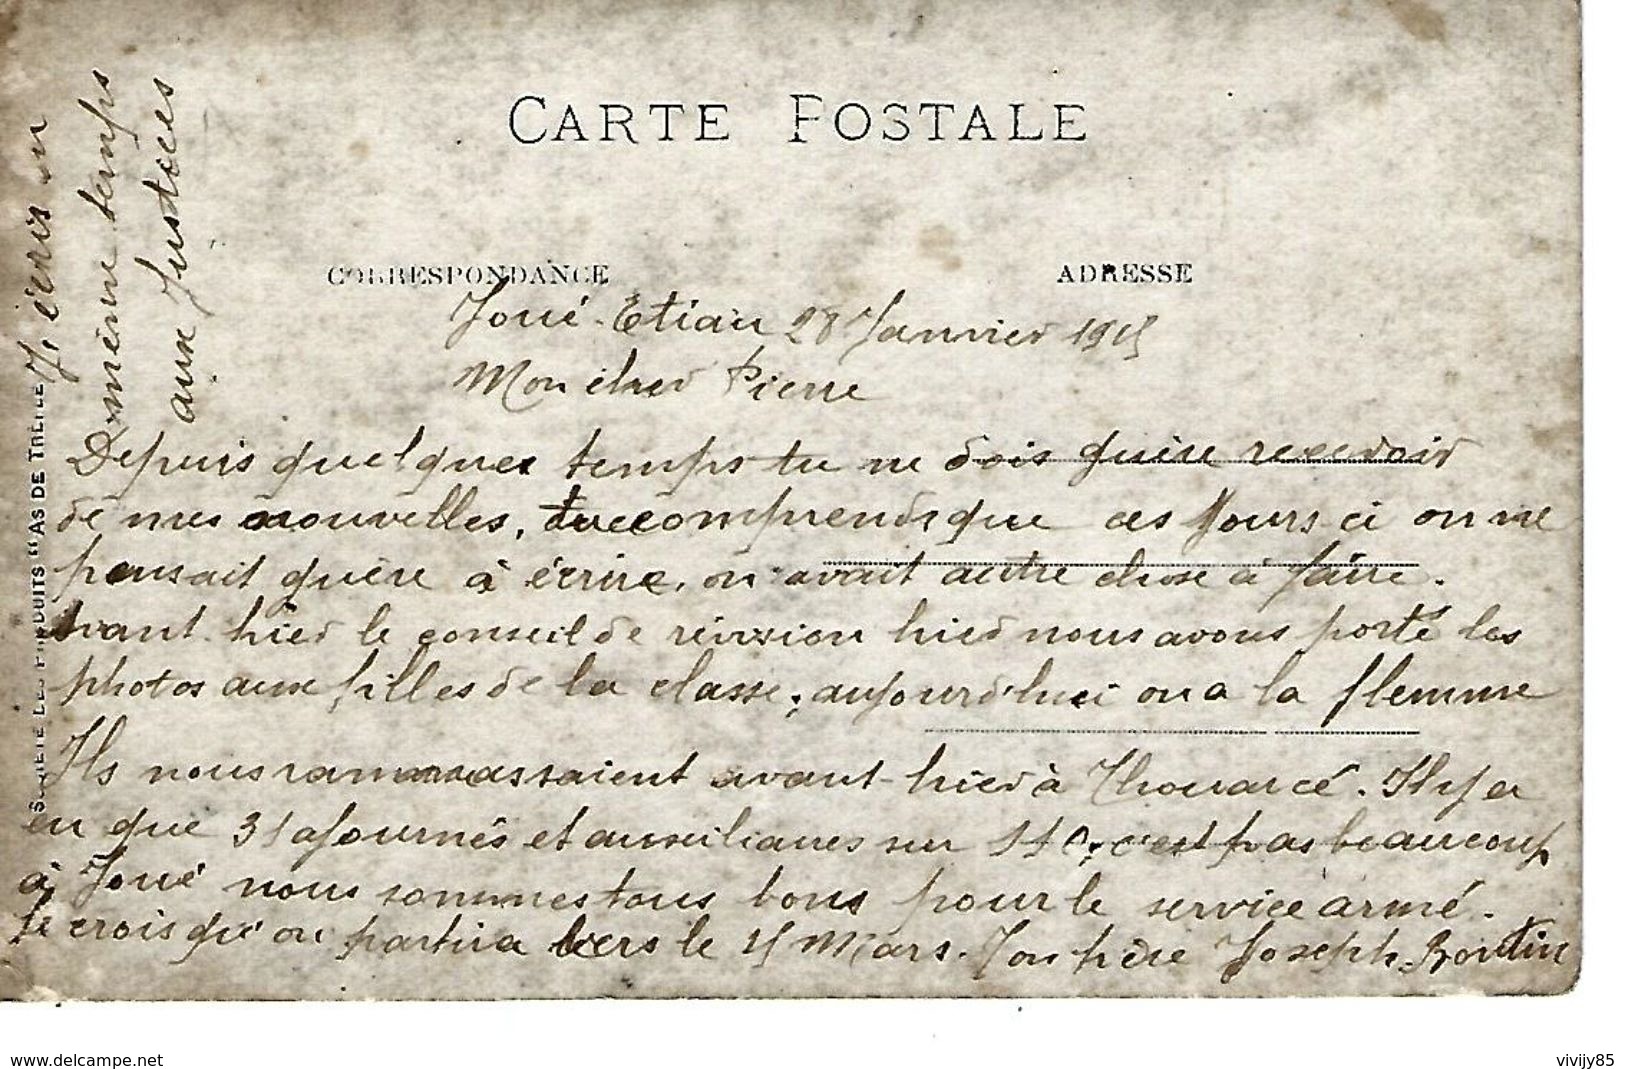 CARTE POSTALE
CORRESPONDANCE
ADRESSE
Joué-Etiau 28 Janvier 1915
Mon cher Pierre
Depuis quelques temps tu ne dois guère recevoir
de mes nouvelles, tu comprends que ces jours ci on ne
pensait guère à écrire, on avait autre chose à faire.
Avant hier le conseil de révision hier nous avons porté les
photos aux filles de la classe, aujourd'hui on a la flemme
Ils nous ramassaient avant-hier à Thouarcé. Il y a
eu que 31 ajournés et auxiliaires sur 110, c'est pas beaucoup
à Joué nous sommes tous bons pour le service armé.
Je crois qu'on partira vers le 15 Mars. Ton frère Joseph Boutin
J'écris en
même temps
aux Justices
SOCIÉTÉ DES PRODUITS "AS DE TRÈFLE"
www.delcampe.net
vivijy85